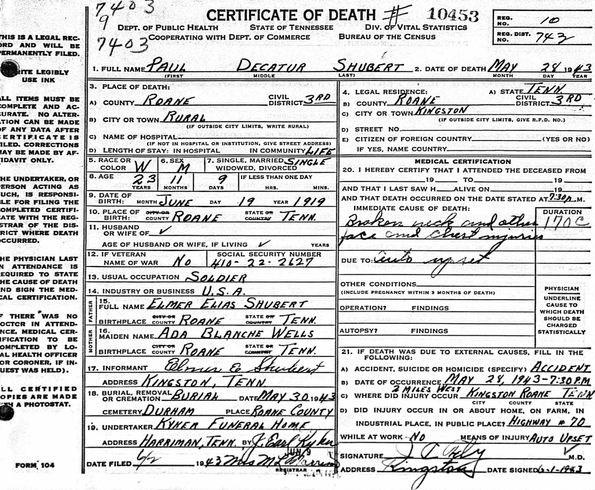 7403
9
7403
CERTIFICATE OF DEATH # 10453
DEPT. OF PUBLIC HEALTH STATE OF TENNESSEE DIV. OF VITAL STATISTICS
COOPERATING WITH DEPT. OF COMMERCE BUREAU OF THE CENSUS
REG. NO. 10
REG. DIST. 742
THIS IS A LEGAL REC-
ORD AND WILL BE
PERMANENTLY FILED.
WRITE LEGIBLY
USE INK
ALL ITEMS MUST BE
COMPLETE AND AC-
CURATE. NO ALTER-
ATION CAN BE MADE
OF ANY DATA AFTER
CERTIFICATE IS
FILED. CORRECTIONS
MAY BE MADE BY AF-
FIDAVIT ONLY.
THE UNDERTAKER, OR
PERSON ACTING AS
SUCH, IS RESPONSI-
BLE FOR FILING THE
COMPLETED CERTIFI-
CATE WITH THE REG-
ISTRAR OF THE DIS-
TRICT WHERE DEATH
OCCURRED.
THE PHYSICIAN LAST
IN ATTENDANCE IS
REQUIRED TO STATE
THE CAUSE OF DEATH
AND SIGN THE MEDI-
CAL CERTIFICATION.
IF THERE WAS NO
DOCTOR IN ATTEND-
ANCE, MEDICAL CER-
TIFICATION TO BE
COMPLETED BY LO-
CAL HEALTH OFFICER
OR CORONER, IF IN-
QUEST WAS HELD).
ALL CERTIFIED
COPIES ARE MADE
ON A PHOTOSTAT.
FORM 104
1. FULL NAME PAUL DECATUR SHUBERT 2. DATE OF DEATH MAY 28 1943
(FIRST) MIDDLE LAST) MONTH DAY YEAR
3. PLACE OF DEATH:
A) COUNTY ROANE CIVIL DISTRICT 3RD
B) CITY OR TOWN RURAL
(IF OUTSIDE CITY LIMITS, WRITE RURAL)
C) NAME OF HOSPITAL
(IF NOT IN HOSPITAL OR INSTITUTION, GIVE STREET ADDRESS)
D) LENGTH OF STAY: IN HOSPITAL IN COMMUNITY LIFE
4. LEGAL RESIDENCE: A) STATE TENN
B) COUNTY ROANE CIVIL DISTRICT 3RD
C) CITY OR TOWN KINGSTON
(IF OUTSIDE CITY LIMITS, GIVE R.F.D. NO.)
D) STREET NO.
E) CITIZEN OF FOREIGN COUNTRY (YES OR NO)
IF YES, NAME COUNTRY
5. RACE OR COLOR W 6. SEX M 7. SINGLE, MARRIED, WIDOWED, DIVORCED SINGLE
8. AGE 23 11 9 IF LESS THAN ONE DAY
YEARS MONTHS DAYS HRS. MINS.
9. DATE OF BIRTH JUNE 19 1919
MONTH DAY YEAR
10. PLACE OF BIRTH CITY OR COUNTY ROANE STATE OR COUNTRY TENN.
11. HUSBAND OR WIFE OF ✓
AGE OF HUSBAND OR WIFE, IF LIVING ✓ YEARS
12. IF VETERAN NAME OF WAR NO SOCIAL SECURITY NUMBER 410-22-2627
13. USUAL OCCUPATION SOLDIER
14. INDUSTRY OR BUSINESS U.S.A.
FATHER
15. FULL NAME ELMER ELIAS SHUBERT
BIRTHPLACE CITY OR COUNTY ROANE STATE OR COUNTRY TENN.
MOTHER
16. MAIDEN NAME ADA BLANCHE WELLS
BIRTHPLACE CITY OR COUNTY ROANE STATE OR COUNTRY TENN.
17. INFORMANT Elmer E Shubert
ADDRESS KINGSTON, TENN
18. BURIAL, REMOVAL OR CREMATION BURIAL DATE MAY 30 1943
CEMETERY DURHAM PLACE ROANE COUNTY
19. UNDERTAKER KYKER FUNERAL HOME
ADDRESS HARRIMAN, TENN. BY J. Earl Kyker
DATE FILED 6/2 1943 Mrs
REGISTRAR
JUN 9
MEDICAL CERTIFICATION
20. I HEREBY CERTIFY THAT I ATTENDED THE DECEASED
FROM 19 TO 19
AND THAT I LAST SAW H ALIVE ON 19
AND THAT DEATH OCCURRED ON THE DATE STATED AT 7:30 P.M.
IMMEDIATE CAUSE OF DEATH: DURATION
Broken neck and other 170C
face and chest injuries
DUE TO Auto upset
OTHER CONDITIONS
(INCLUDE PREGNANCY WITHIN 3 MONTHS OF DEATH)
OPERATION? FINDINGS
AUTOPSY? FINDINGS
PHYSICIAN
UNDERLINE
CAUSE TO
WHICH DEATH
SHOULD BE
CHARGED
STATISTICALLY
21. IF DEATH WAS DUE TO EXTERNAL CAUSES, FILL IN THE
FOLLOWING:
A) ACCIDENT, SUICIDE OR HOMICIDE (SPECIFY) ACCIDENT
B) DATE OF OCCURRENCE MAY 28, 1943-7:30 P.M.
2 MILES WEST
C) WHERE DID INJURY OCCUR KINGSTON ROANE TENN
CITY COUNTY STATE
D) DID INJURY OCCUR IN OR ABOUT HOME, ON FARM, IN
INDUSTRIAL PLACE, IN PUBLIC PLACE? HIGHWAY #70
WHILE AT WORK - NO MEANS OF INJURY AUTO UPSET
SIGNATURE M.D.
ADDRESS Kingston DATE SIGNED 6-1-1943